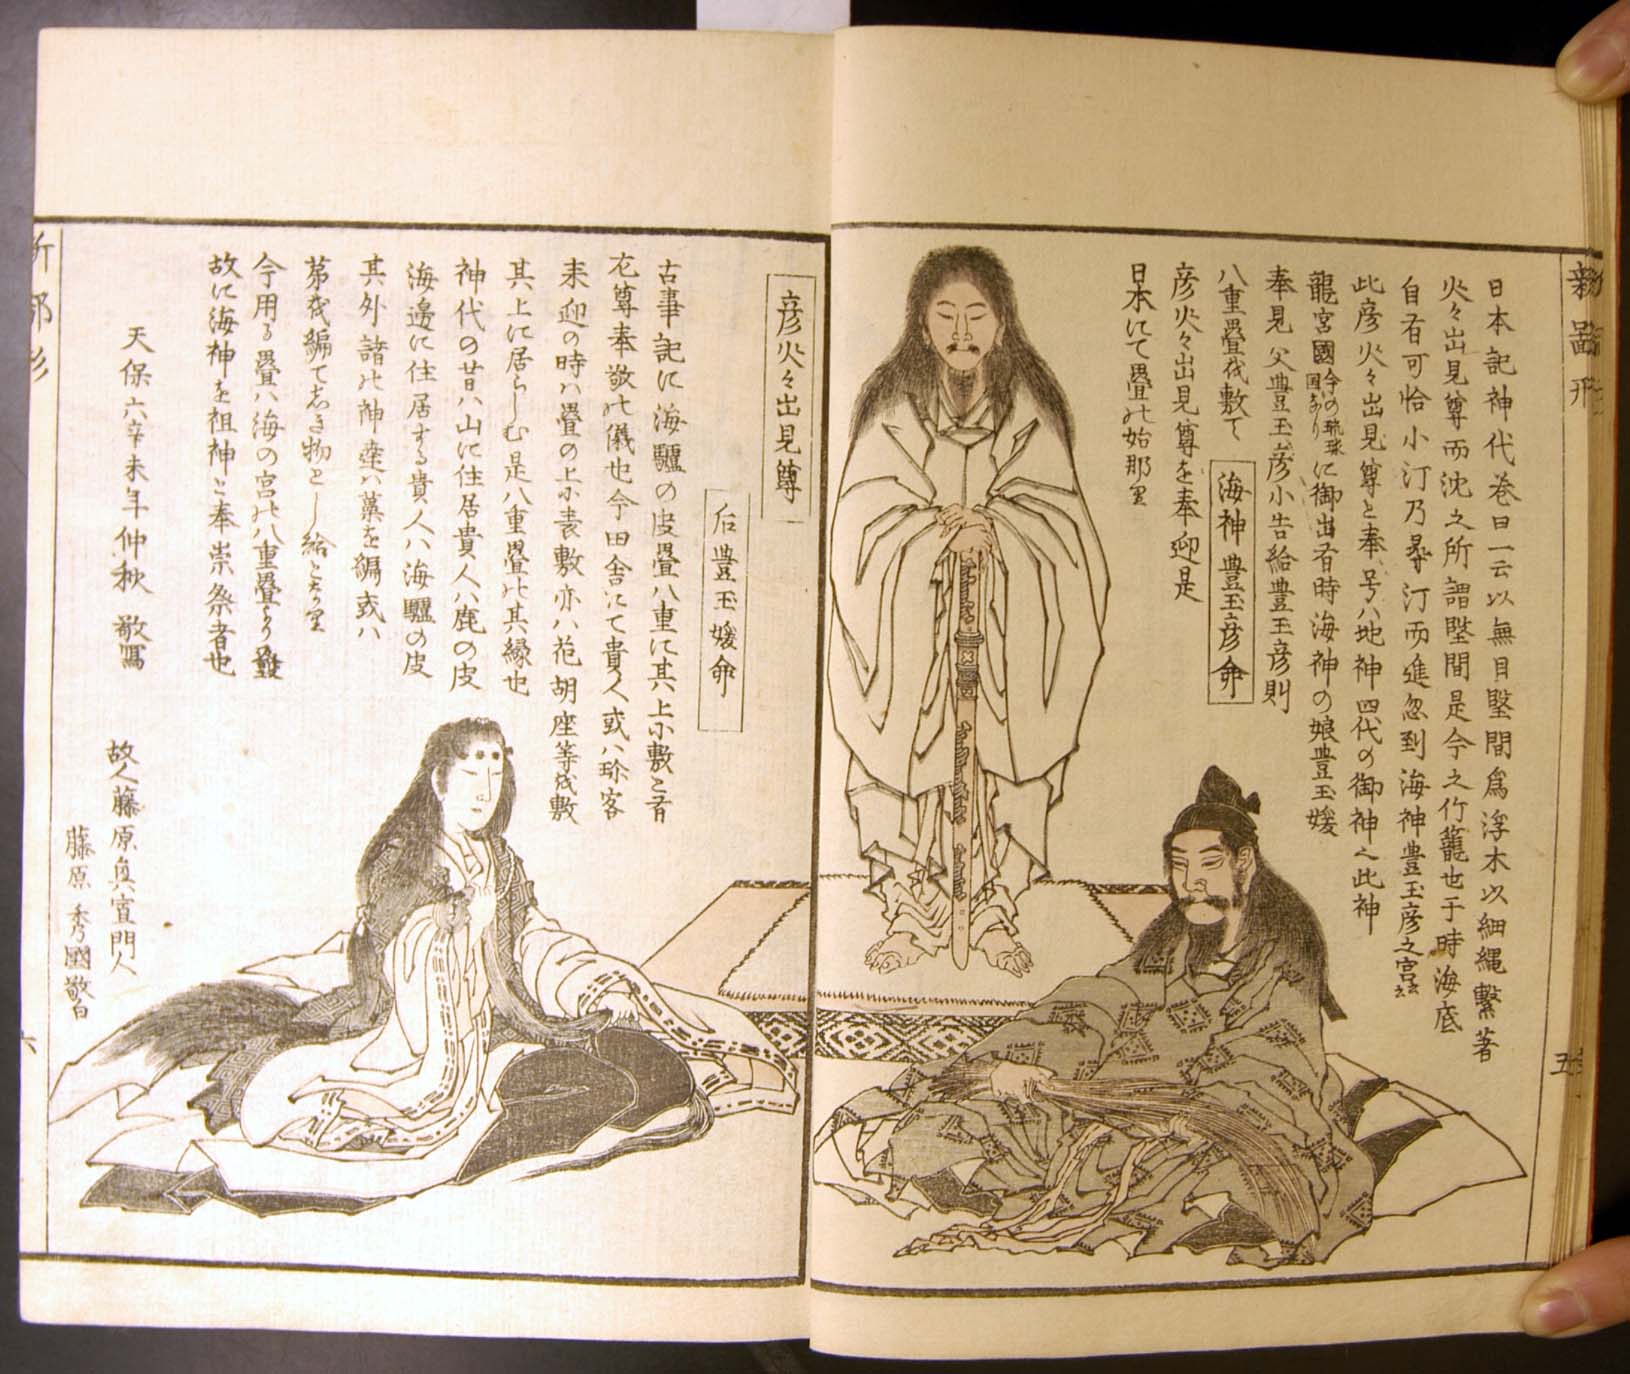 日本記神代巻曰一云以無目堅間為浮木以細縄繋著
火々出見尊而沈之所謂堅間是今之竹籠也于時海底
自有可怡小汀乃尋汀而進忽到海神豊玉彦之宮云云
此彦火々出見尊と奉号ハ地神四代の御神也此神
龍宮國今の琉球国なりに御出有時海神の娘豊玉媛
奉見父豊玉彦尓告給豊玉彦則
八重畳を敷て
海神豊玉彦命
彦火々出見尊を奉迎是
日本にて畳の始那里
彦火々出見尊
后豊玉媛命
古事記に海驢の皮畳八重に其上尓敷と有
尊奉敬の儀也今田舎にて貴人或ハ珍客
来迎の時ハ畳の上尓表敷亦ハ花胡座等を敷
其上に居らしむ是八重畳の其縁也
神代の昔ハ山に住居貴人ハ鹿の皮
海邊に住居する貴人ハ海驢の皮
其外諸の神達ハ菰を編或ハ
を編てしき物とし給となり
今用る畳ハ海の宮の八重畳より
故に海神を祖神と奉崇祭者也
天保六辛未年仲秋 敬寫
故人藤原真宣門人
藤原 秀國敬白
五
六